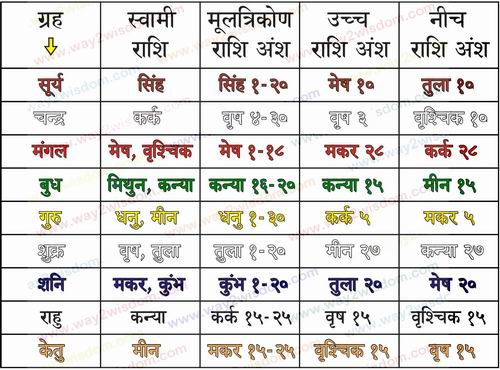 ग्रह स्वामी मूलत्रिकोण उच्च नीच
राशि राशि अंश राशि अंश राशि अंश
सूर्य सिंह सिंह १-२० मेष १० तुला १०
चन्द्र कर्क वृष ४-३० वृष ३ वृश्चिक १०
मंगल मेष, वृश्चिक मेष १-१८ मकर २८ कर्क २८
बुध मिथुन, कन्या कन्या १६-२० कन्या १५ मीन १५
गुरु धनु, मीन धनु १-३० कर्क ५ मकर ५
शुक्र वृष, तुला तुला १-२० मीन २७ कन्या २७
शनि मकर, कुंभ कुंभ १-२० तुला २० मेष २०
राहु कन्या कर्क १५-२५ वृष १५ वृश्चिक १५
केतु मीन मकर १५-२५ वृश्चिक १५ वृष १५
www.way2wisdom.com